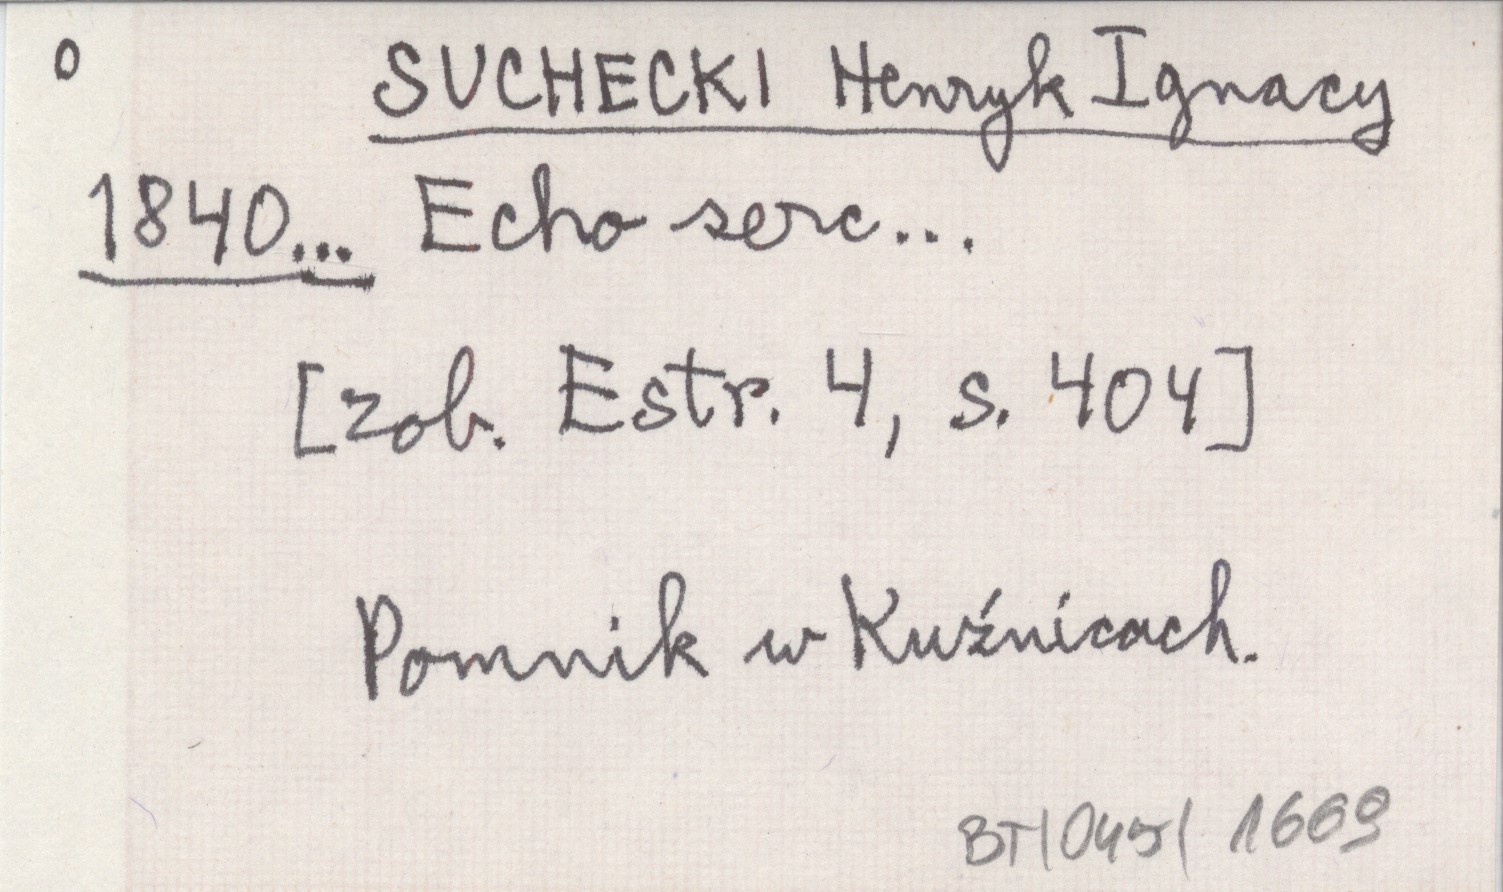 0 SUCHECKI Henryk Ignacy
1840... Echo serc...
[zob. Estr. 4, s. 404]
Pomnik w Kuźnicach.
BT/045/ 1669